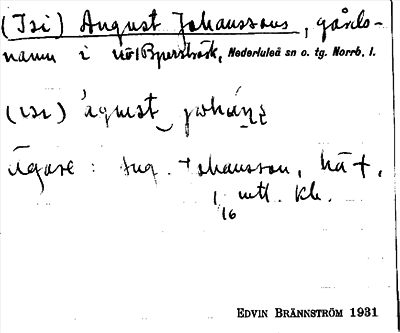 (Isi) August Johanssons, gårds-
namn i Nederluleå sn o. tg. Norrb. l.
(ɪsi) águst johán
Ägare: Aug. Johansson,
1/16 mtl. kr.
EDVIN BRÄNNSTRÖM 1931